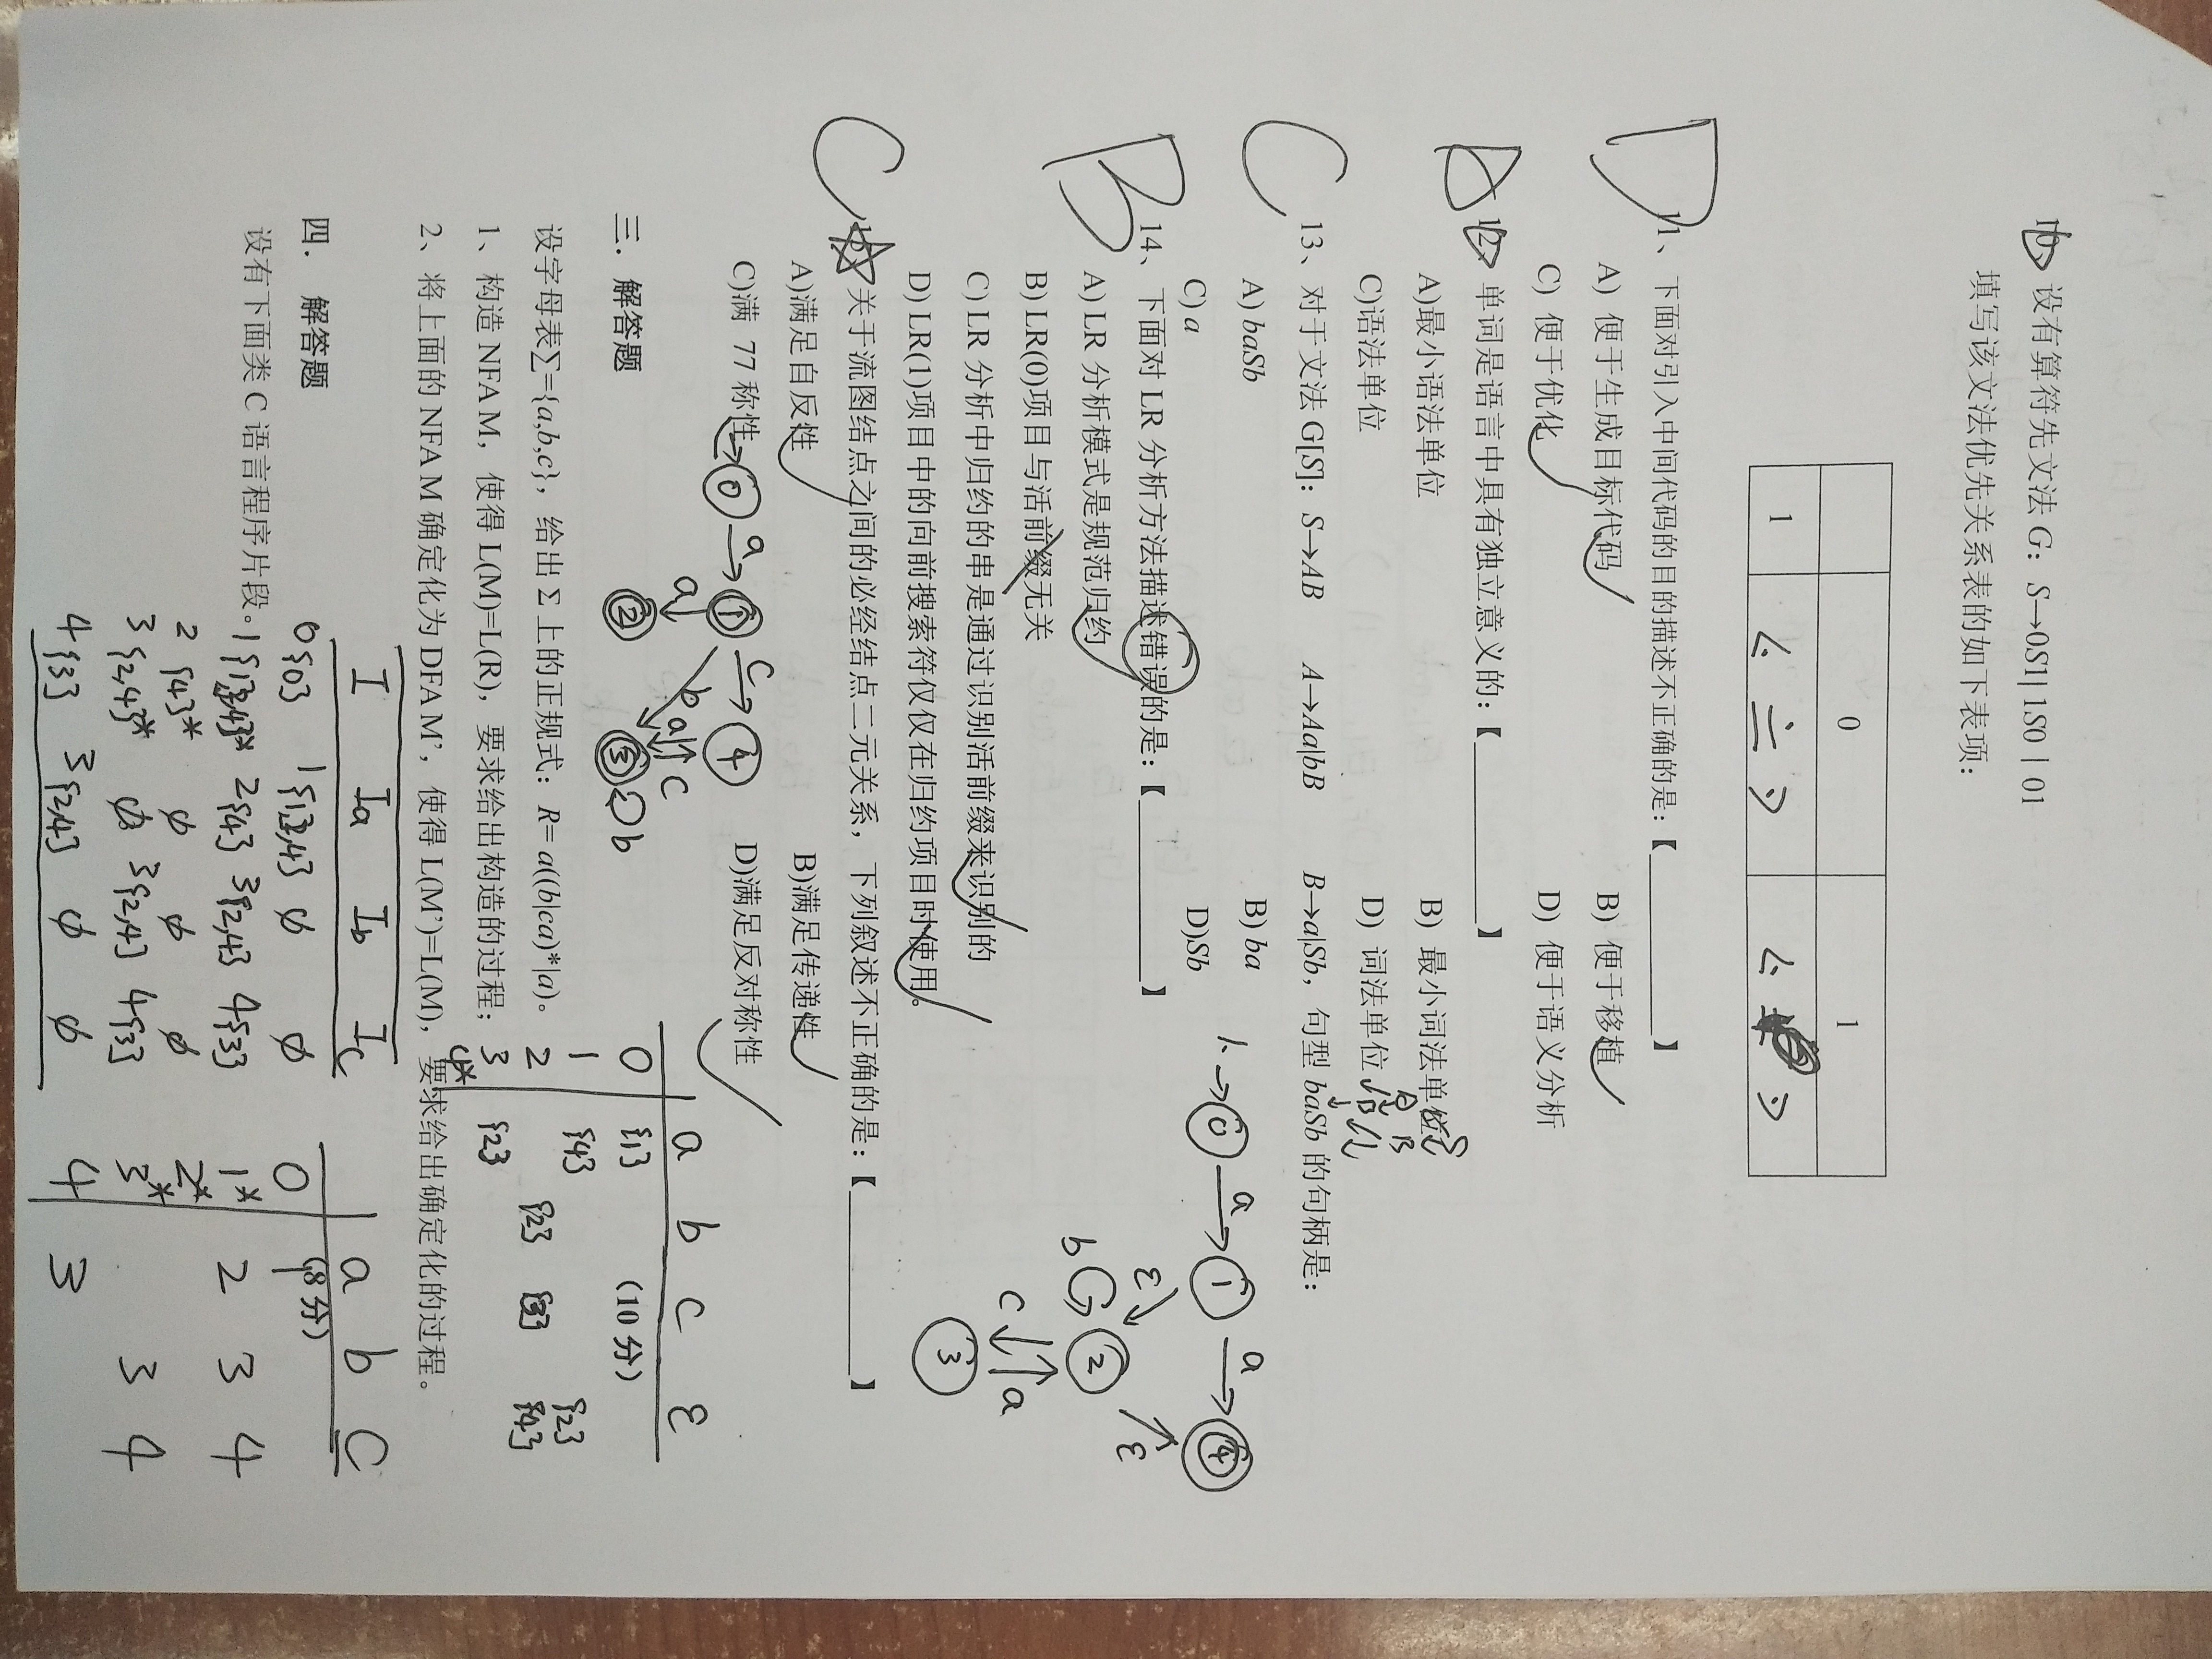 10、设有算符先文法 G: S→0S1| 1S0 | 01
填写该文法优先关系表的如下表项：
0 1
1 <· =· ·> <· ·>
D 11、下面对引入中间代码的目的描述不正确的是：【 】
A) 便于生成目标代码 B) 便于移植
C) 便于优化 D) 便于语义分析
12、单词是语言中具有独立意义的：【 】
A)最小语法单位 B) 最小词法单
C)语法单位 D) 词法单位
C 13、对于文法 G[S]: S→AB A→Aa|bB B→a|Sb，句型 baSb 的句柄是：
A) baSb B) ba
C) a D)Sb
B 14、下面对 LR 分析方法描述错误的是：【 】
A) LR 分析模式是规范归约
B) LR(0)项目与活前缀无关
C) LR 分析中归约的串是通过识别活前缀来识别的
D) LR(1)项目中的向前搜索符仅仅在归约项目时使用。
C 15、关于流图结点之间的必经结点二元关系，下列叙述不正确的是：【 】
A)满足自反性 B)满足传递性
C)满 77 称性 D)满足反对称性
1. → 0 a → 1 a → 4
ε ε
b 2
c a
3
→ 0 a → 1 c → 4
a b a c
2 3 b
三． 解答题 (10 分)
设字母表∑={a,b,c}，给出 Σ 上的正规式：R= a((b|ca)*|a)。
1、构造 NFA M，使得 L(M)=L(R)，要求给出构造的过程；
2、将上面的 NFA M 确定化为 DFA M’，使得 L(M’)=L(M)，要求给出确定化的过程。
a b c ε
0 {1}
1 {4} {2}
2 {2} {3} {4}
3 {2}
4*
四． 解答题 (8 分)
设有下面类 C 语言程序片段。
I Ia Ib Ic
0{0} 1{1,2,4} φ φ
1{1,2,4}* 2{4} 3{2,4} 4{3}
2 {4}* φ φ φ
3 {2,4}* φ 3{2,4} 4{3}
4{3} 3{2,4} φ φ
a b c
0
1* 2 3 4
2*
3* 3 4
4 3